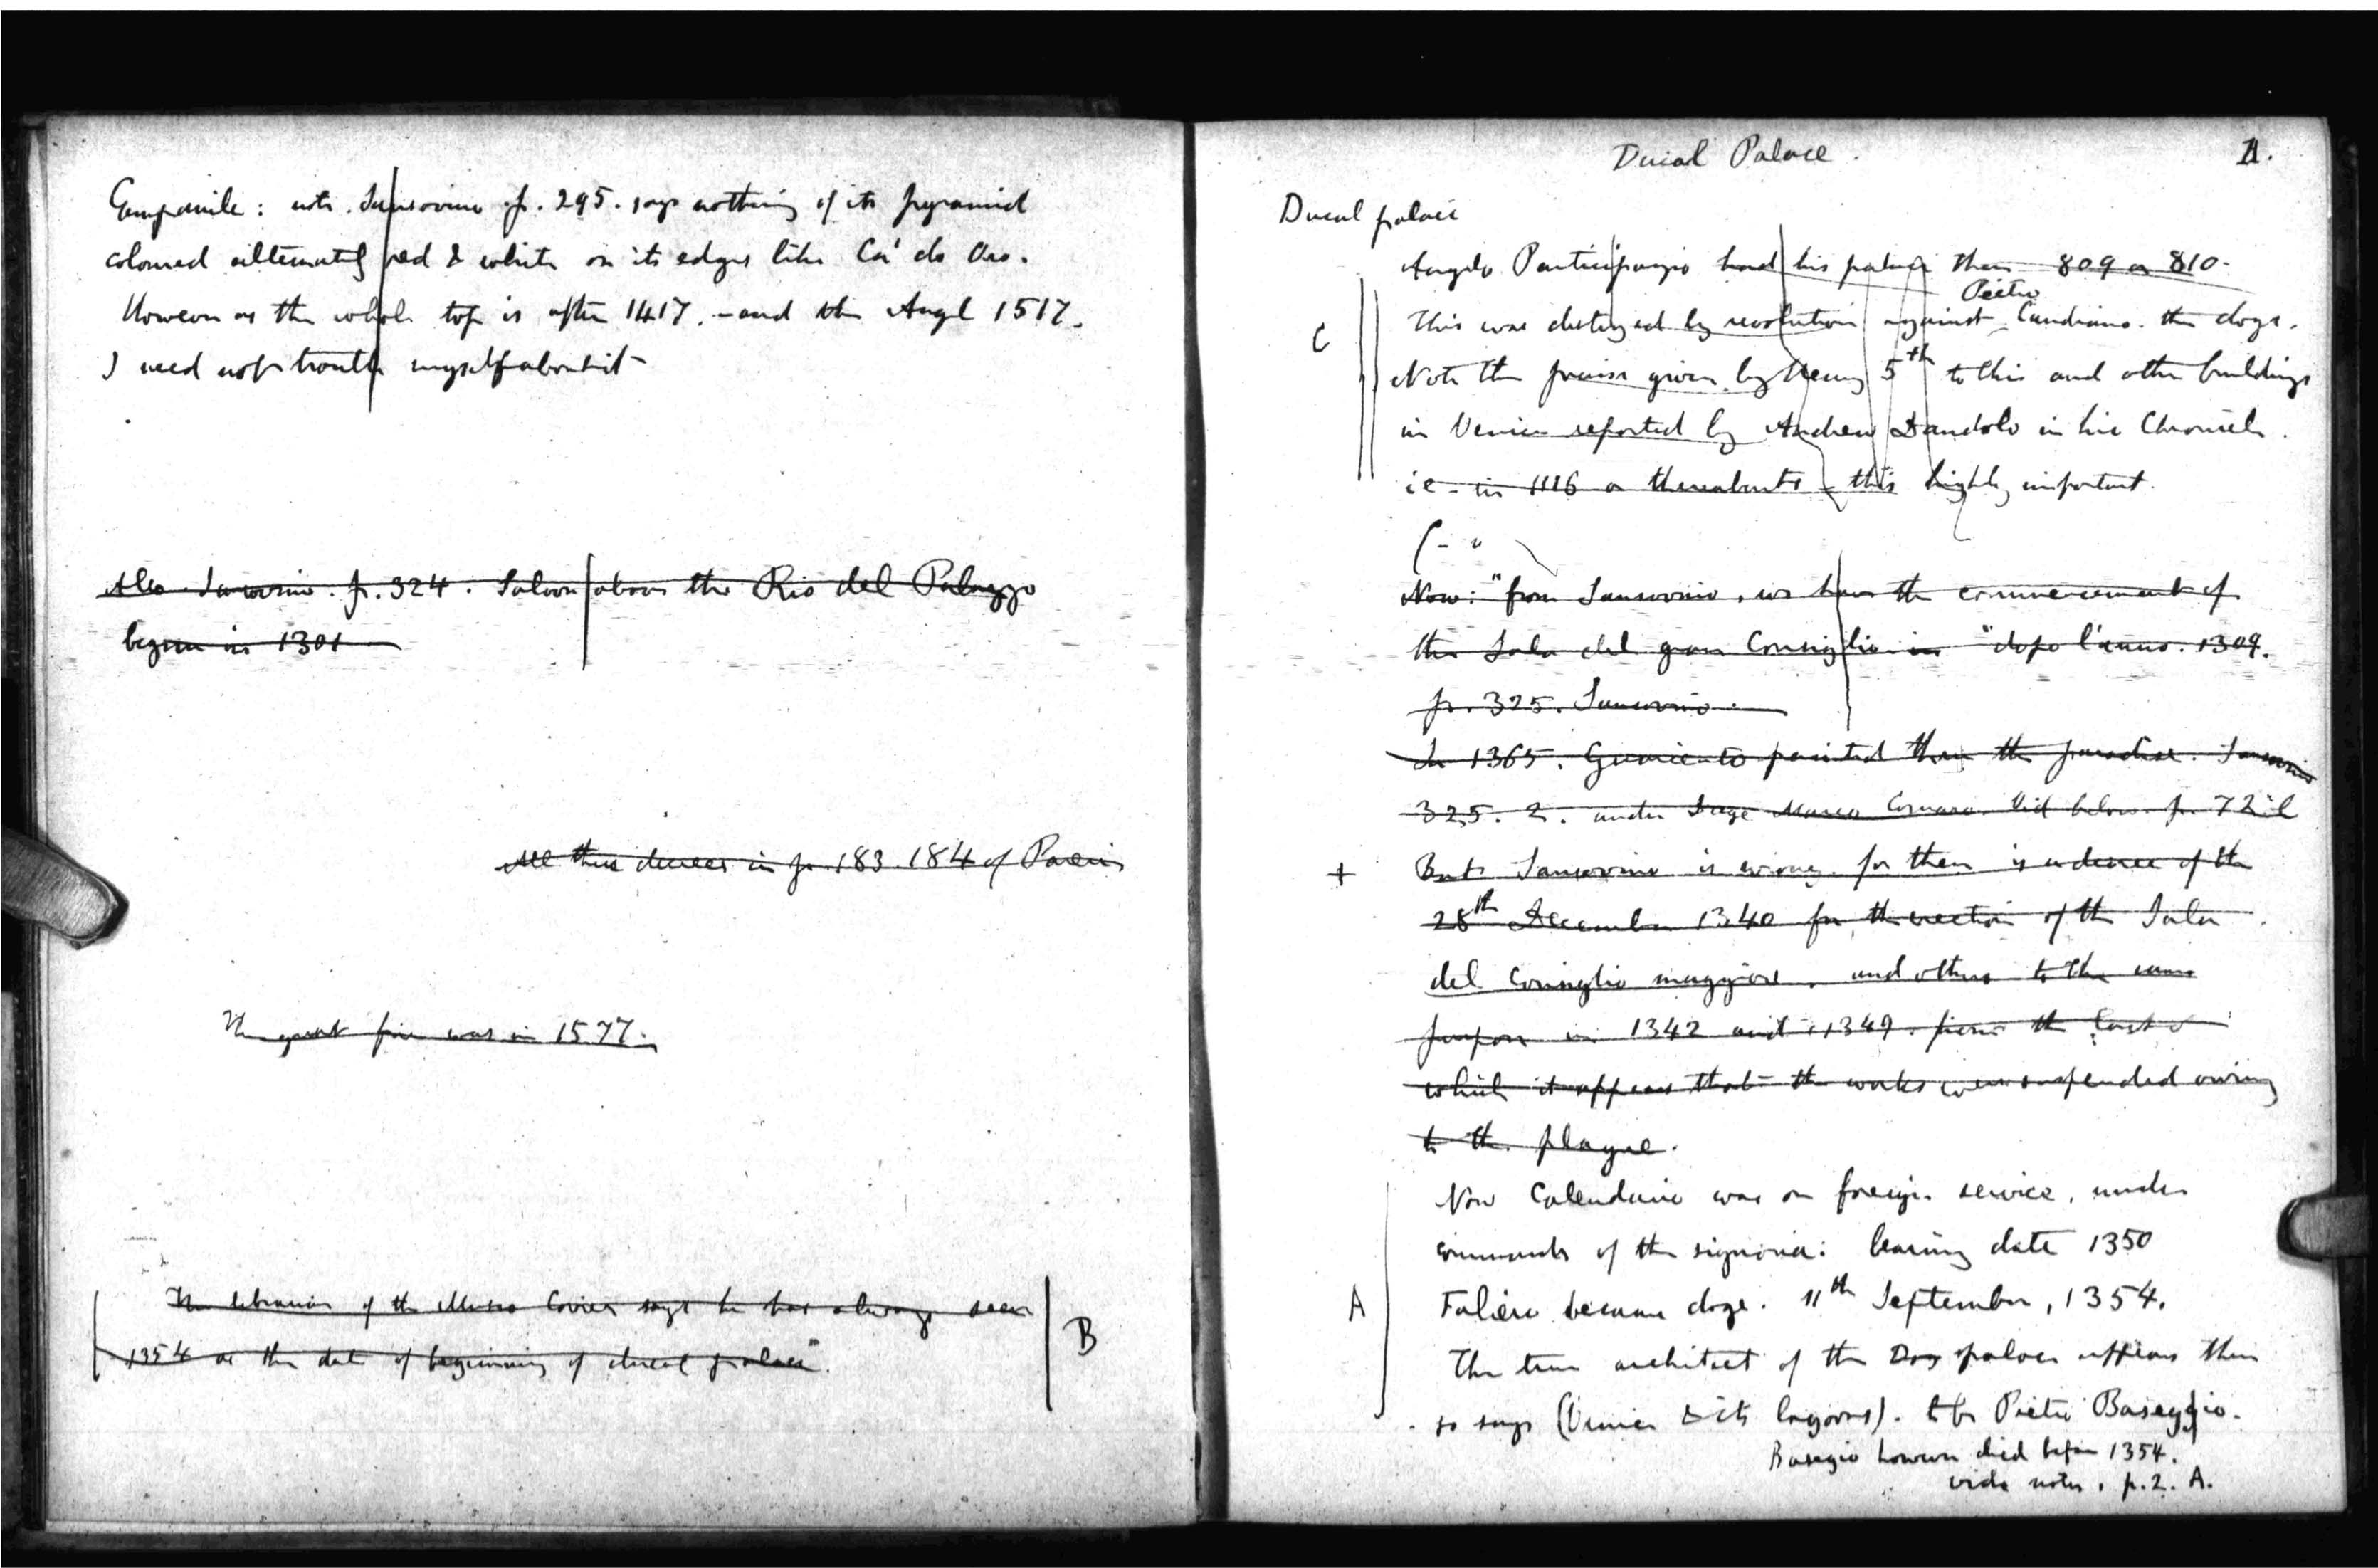 Campanile: note. Sansovino. p. 295. says nothing of its pyramid
coloured alternately red & white on its edges like Ca' do Oro.
However as the whole top is after 1417. - and the Angl 1517.
I need not trouble myself about it
Also Sansovino. p. 324. Saloon above the Rio del Palazzo
begun in 1301
All these decrees in p. 183. 184 of
The great fire was in 1577.
The librarian of the Museo Correr says he has always seen
1354 as the date of beginning of ducal palace".
B
Ducal Palace.
1.
Ducal palace
Angelo Participazio had his palace there 809 or 810.
Pietro
This was destroyed by revolution against Candiano. the doge.
C
Note the praise given by Henry 5th to this and other buildings
in Venice reported by Andrew Dandolo in his Chronicle.
ie - in 1116 or thereabouts - this highly important.
Now: "from Sansovino, we have the commencement of
the Sala del gran Consiglio in "dopo l'anno. 1309.
p. 325. Sansovino.
In 1365. Guariento painted there the paradise. Sansovino
325. 2. under Doge Marco Cornaro. Vid below. p. 72
+ But Sansovino is wrong. for there is a decree of the
28th December 1340 for the erection of the Sala
del Consiglio maggiore, and others to the same
purpose in 1342 and 1349. from the last of
which it appears that the works were suspended owing
to the plague.
Now Calendario was on foreign service, under
commands of the signoria: bearing date 1350
A
Faliero became doge. 11th September, 1354.
The true architect of the Dog palace appears then
so says (Venice & its lagoons). to be Pietro Baseggio.
Basegio however died before 1354.
vide notes, p. 2. A.